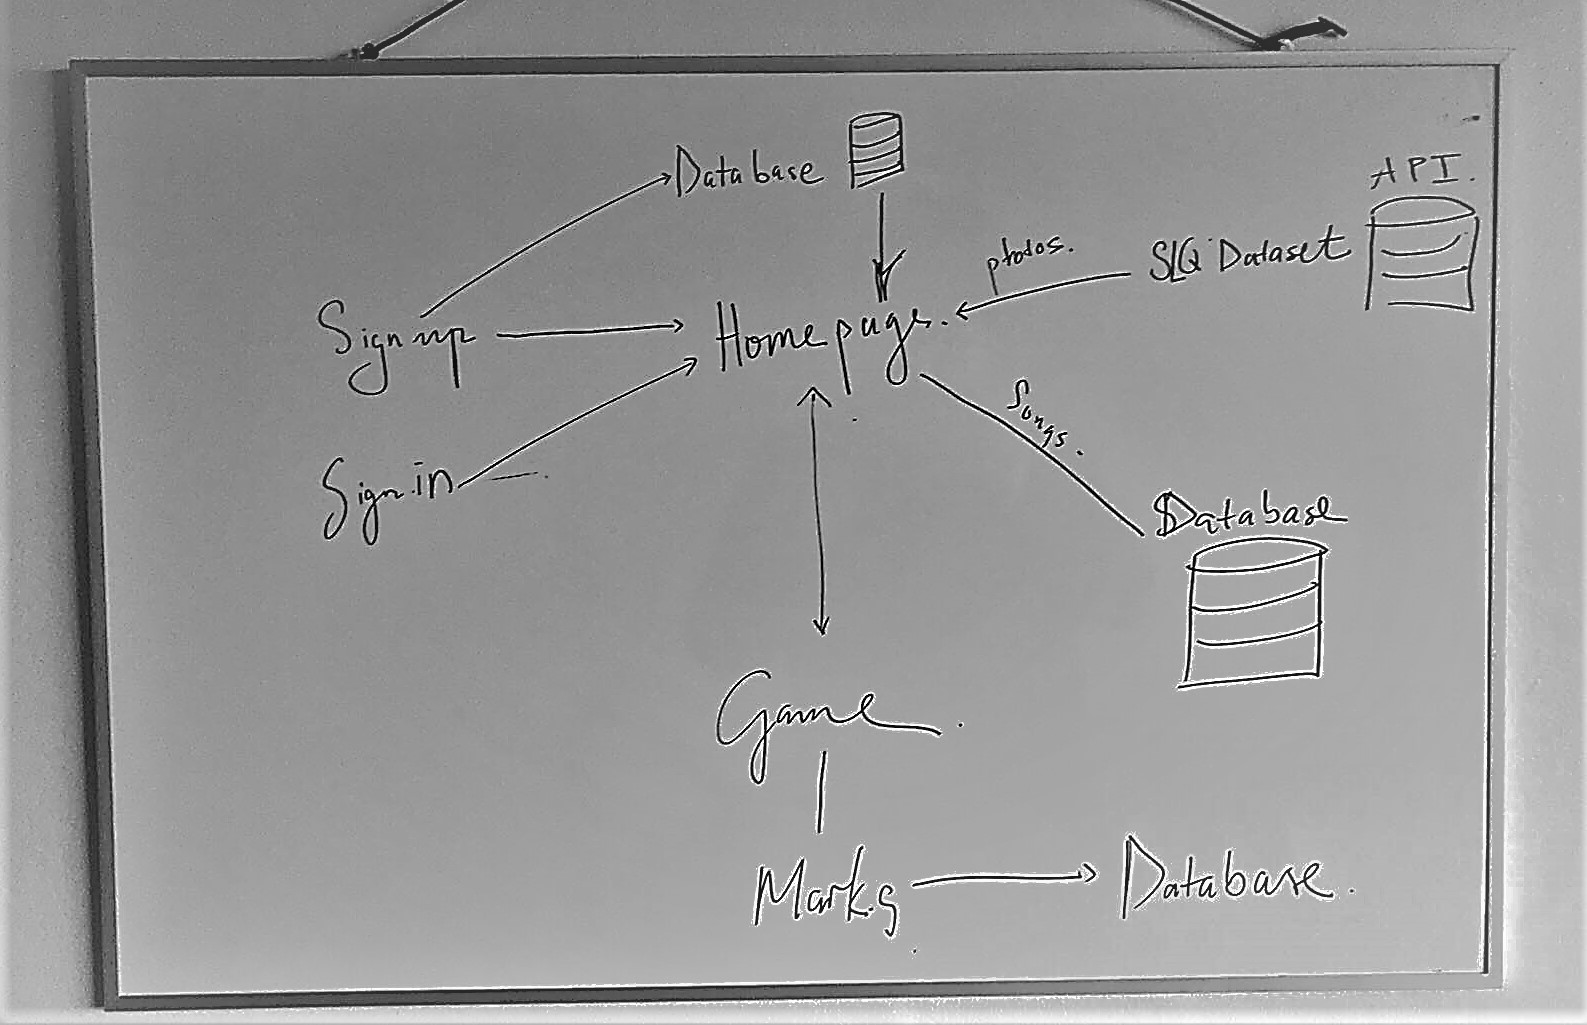 Database
API.
photos.
SLQ Dataset
Sign up
Homepage.
Songs.
Sign in
Database
Game.
Marks
Database.